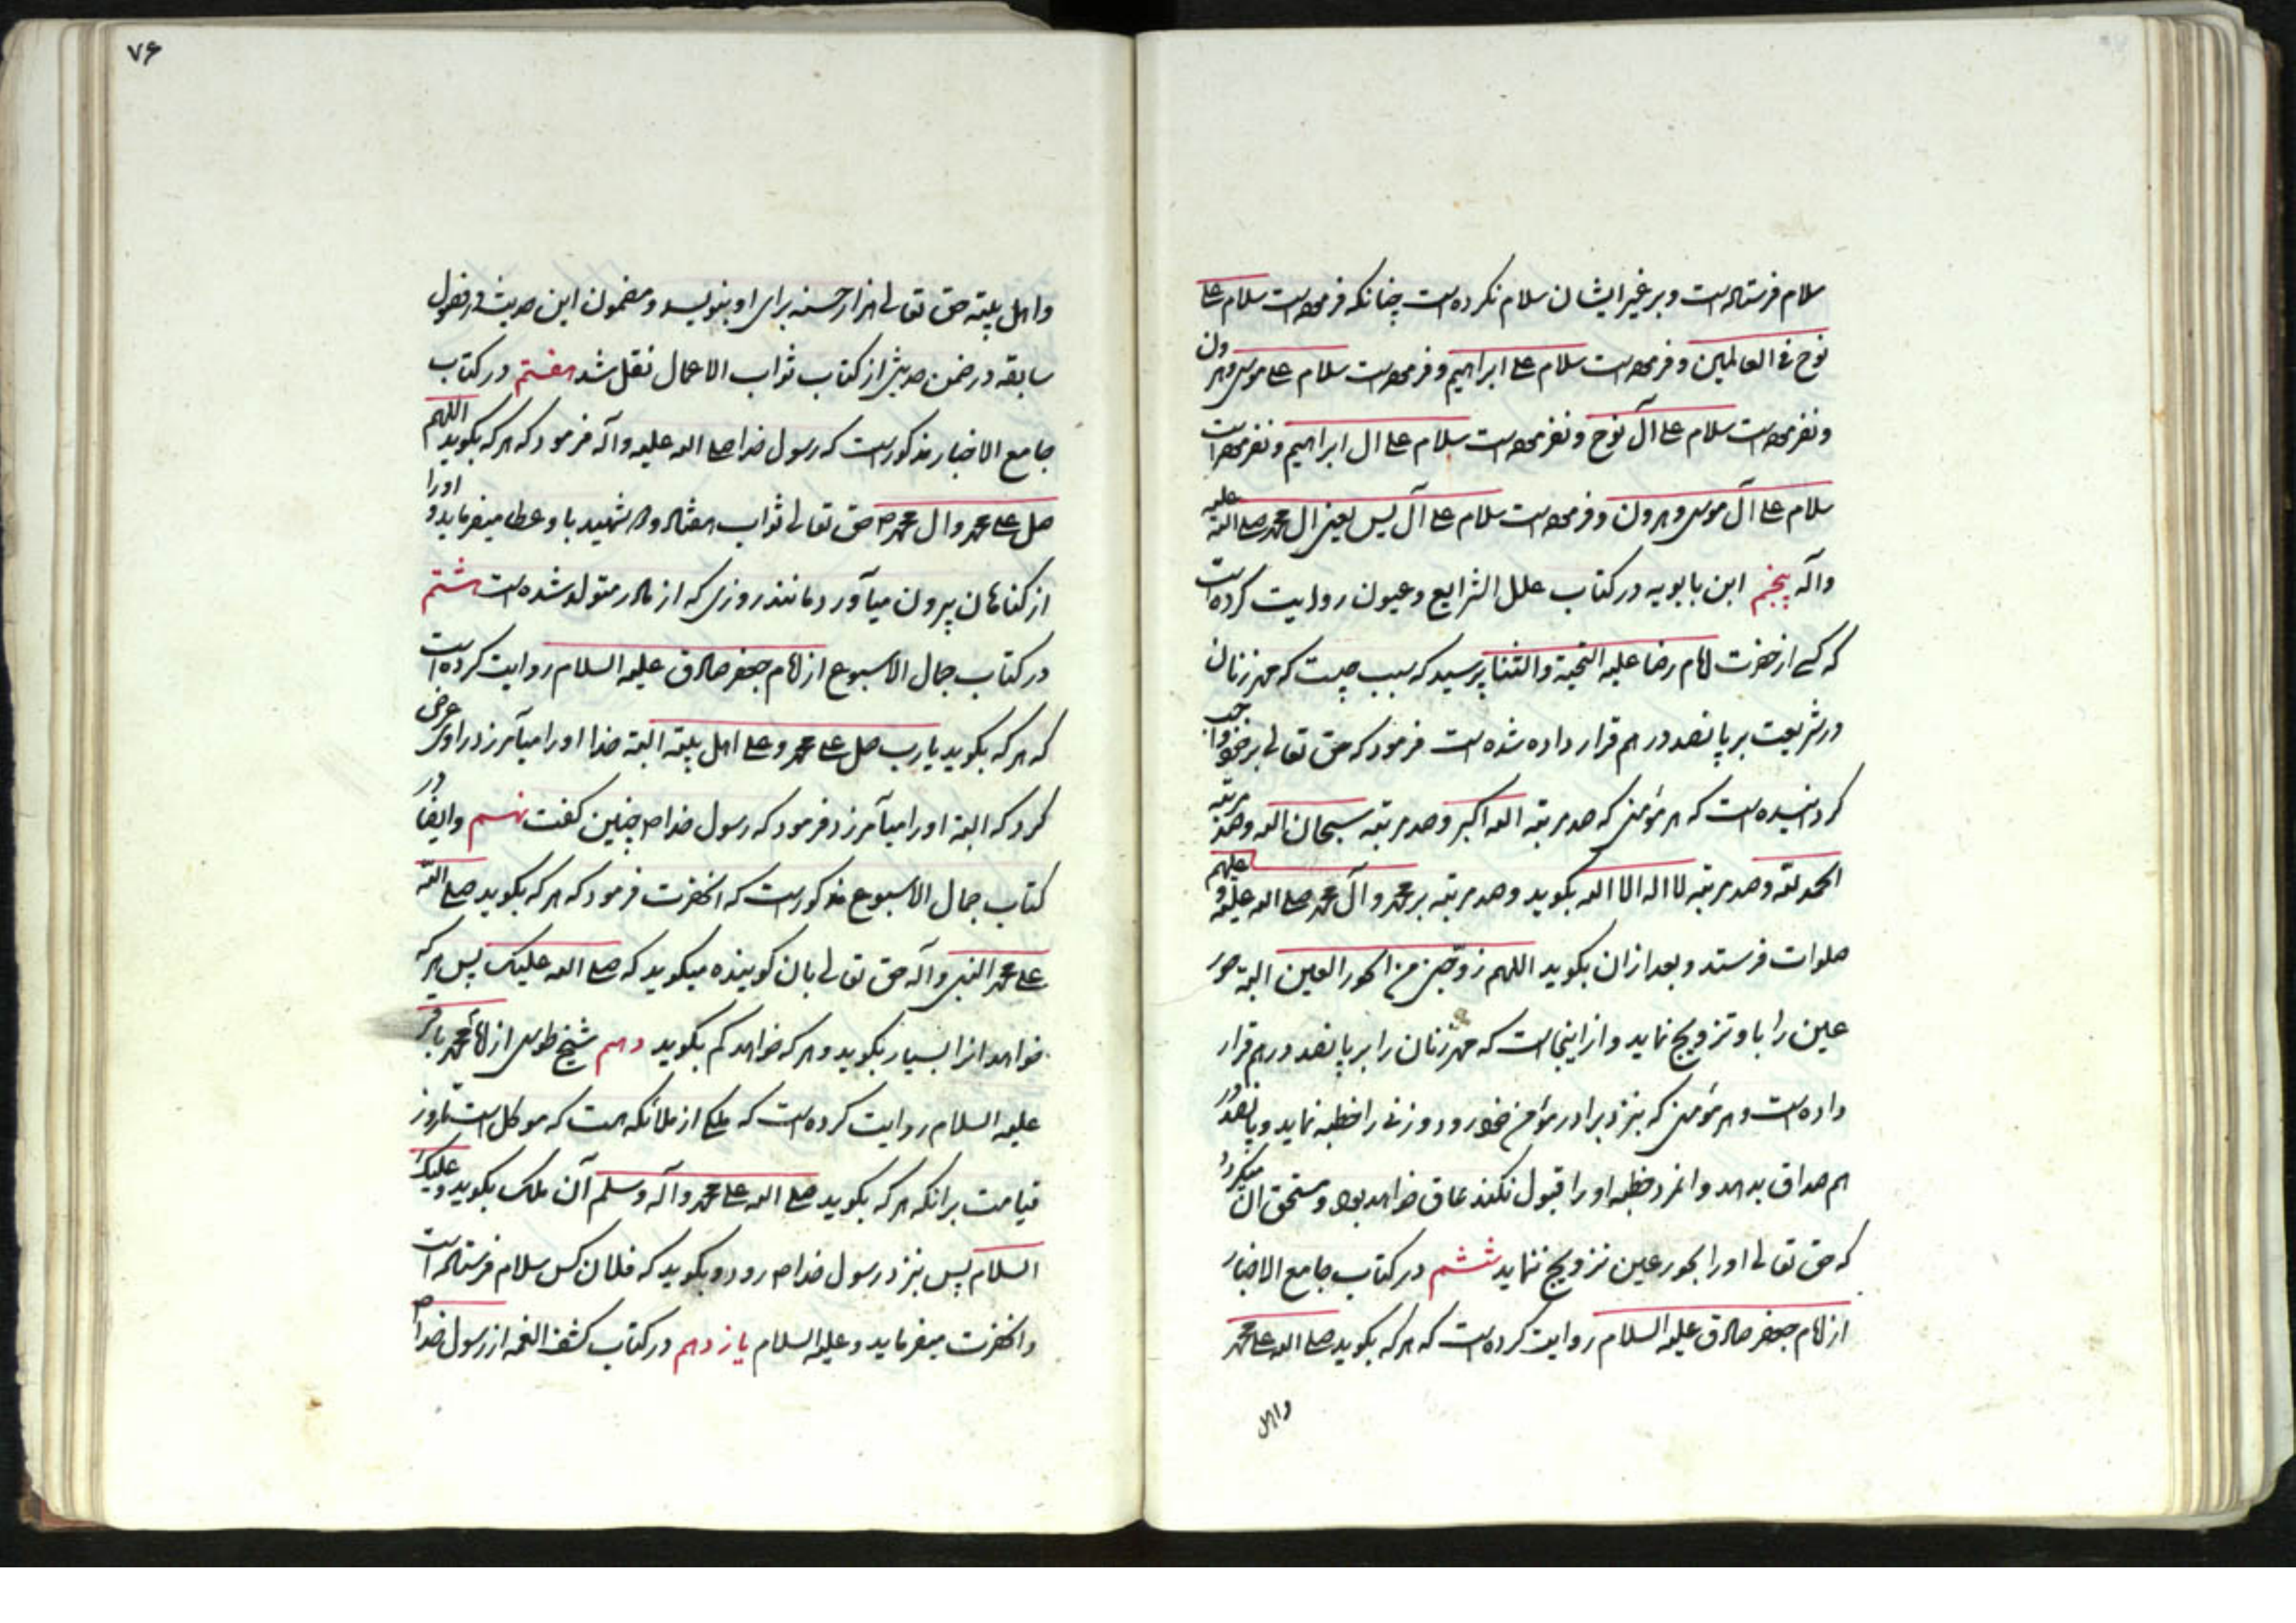 سلام فرستاده است و بر غیر ایشان سلام نکرده است چنانکه فرموده است سلام علی
نوح فی العالمین و فرموده است سلام علی ابراهیم و فرموده است سلام علی موسی و هرون
و نفرموده است سلام علی آل نوح و نفرموده است سلام علی ال ابراهیم و نفرموده است
سلام علی آل موسی و هرون و فرموده است سلام علی آل یس یعنی ال محمد صلی الله علیه
وآله پنجم ابن بابویه در کتاب علل الشرایع و عیون روایت کرده است
که کسی از حضرت امام رضا علیه التحیة والثنا پرسید که سبب چیست که مهر زنان
در شریعت بر پانصد درهم قرار داده شده است فرمود که حق تعالی بر خود واجب
کردانیده است که هر مؤمنی که صد مرتبه الله اکبر و صد مرتبه سبحان الله و صد مرتبه
الحمد لله و صد مرتبه لا اله الا الله بکوید و صد مرتبه بر محمد و آل محمد صلی الله علیه و علیهم
صلوات فرستد و بعد از ان بکوید اللهم زوجنی من الحور العین البته حور
عین را باو تزویج نماید و از اینجاست که مهر زنان را بر پانصد درهم قرار
داده است و هر مؤمنی که بنزد برادر مؤمن خود رود و زنی را خطبه نماید و پانصد در
هم صداق بدهد و انمرد خطبه او را قبول نکند عاق خواهد بود و مستحق ان میکردد
که حق تعالی او را بحور عین تزویج ننماید ششم در کتاب جامع الاخبار
از امام جعفر صادق علیه السلام روایت کرده است که هر که بکوید صلی الله علی محمد
واهل
۷۶
واهل بیته حق تعالی هزار حسنه برای او بنویسد و مضمون این حدیث در فصول
سابقه در ضمن حدیثی از کتاب ثواب الاعمال نقل شد هفتم در کتاب
جامع الاخبار مذکور است که رسول خدا صلی الله علیه وآله فرمود که هر که بکوید اللهم
صل علی محمد وال محمد حق تعالی ثواب هفتاد و دو شهید باو عطا میفرماید و او را
از کناهان بیرون میآورد مانند روزی که از مادر متولد شده است هشتم
در کتاب جمال الاسبوع از امام جعفر صادق علیه السلام روایت کرده است
که هر که بکوید یا رب صل علی محمد و علی اهل بیته البته خدا او را میآمرزد راوی عرض
کرد که البته او را میآمرزد فرمود که رسول خدا ص چنین کفت نهم وایضا در
کتاب جمال الاسبوع مذکور است که انحضرت فرمود که هر که بکوید صلی الله
علی محمد النبی وآله حق تعالی بان کوینده میکوید که صلی الله علیک پس هر که
خواهد انرا بسیار بکوید و هر که خواهد کم بکوید دهم شیخ طوسی از امام محمد باقر
علیه السلام روایت کرده است که ملکی از ملائکه هست که موکل است تا روز
قیامت برانکه هر که بکوید صلی الله علی محمد وآله وسلم آن ملک بکوید و علیک
السلام پس بنزد رسول خدا ص رود و بکوید که فلان کس سلام فرستاده است
وانحضرت میفرماید و علیه السلام یازدهم در کتاب کشف الغمه از رسول خدا ص